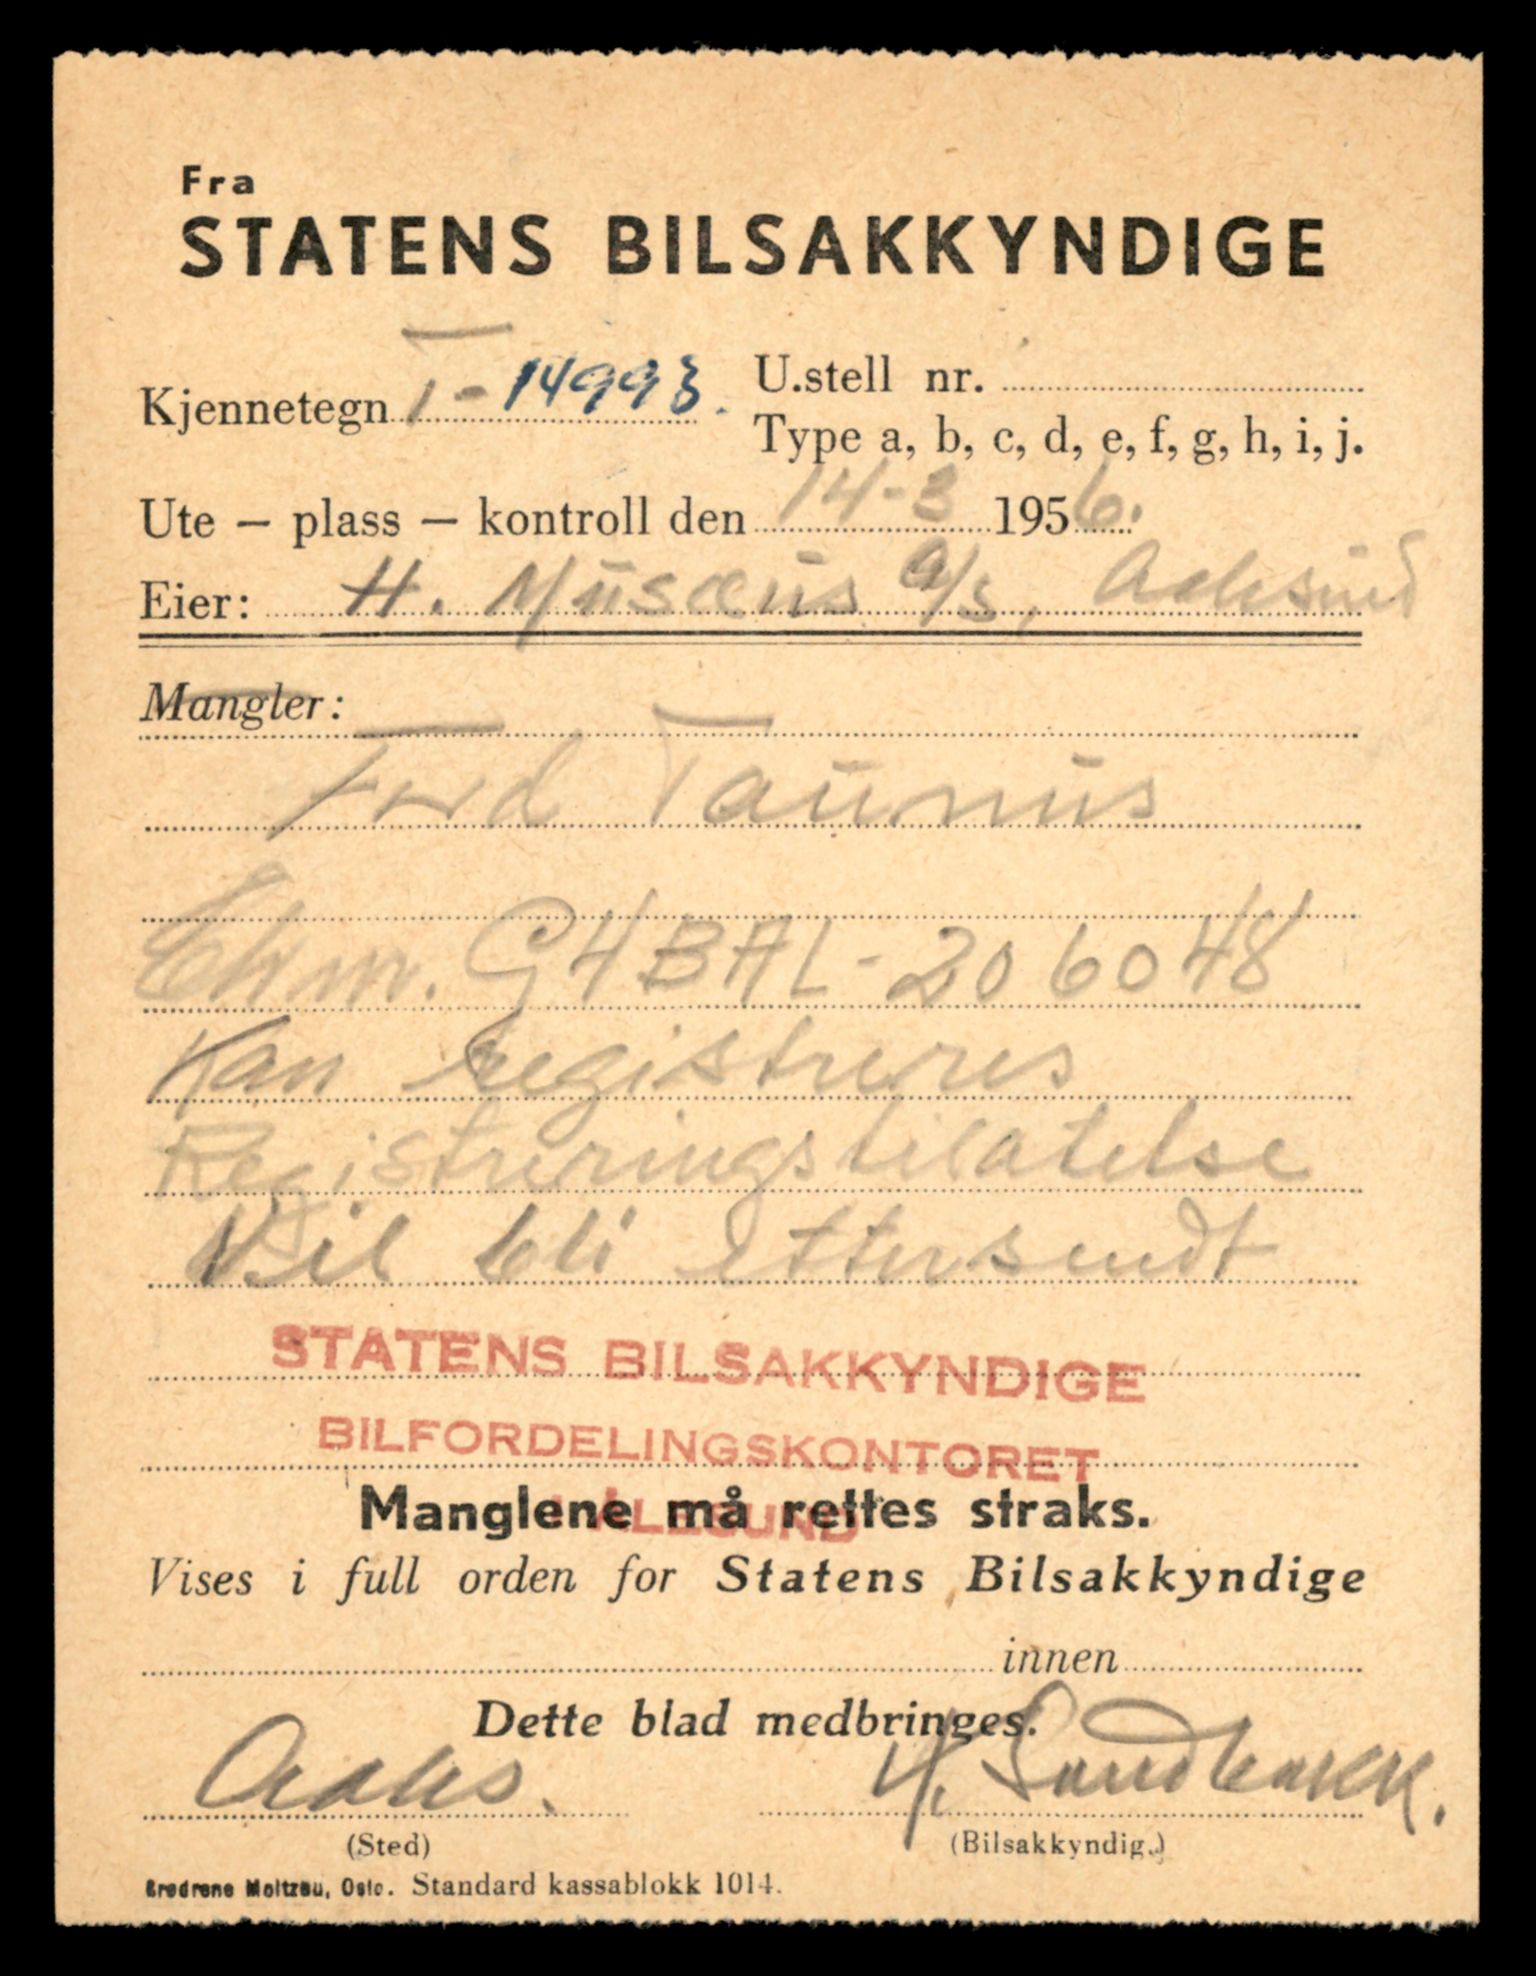 Fra
STATENS BILSAKKYNDIGE
Kjennetegn T-14993.
U.stell nr.
Type a, b, c, d, e, f, g, h, i, j.
Ute – plass – kontroll den 14-3 1956.
Eier: H. Musæus a/s, Aalesund
Mangler:
Ford Taunus
Ch nr. G4BAL-206048
Kan registreres
Registreringstilatelse
Vil bli ettersendt
STATENS BILSAKKYNDIGE
BILFORDELINGSKONTORET
ÅLESUND
Manglene må rettes straks.
Vises i full orden for Statens Bilsakkyndige
innen
Dette blad medbringes.
Aales. H. Sandbakk.
(Sted) (Bilsakkyndig.)
Brødrene Moltzau, Oslo. Standard kassablokk 1014.